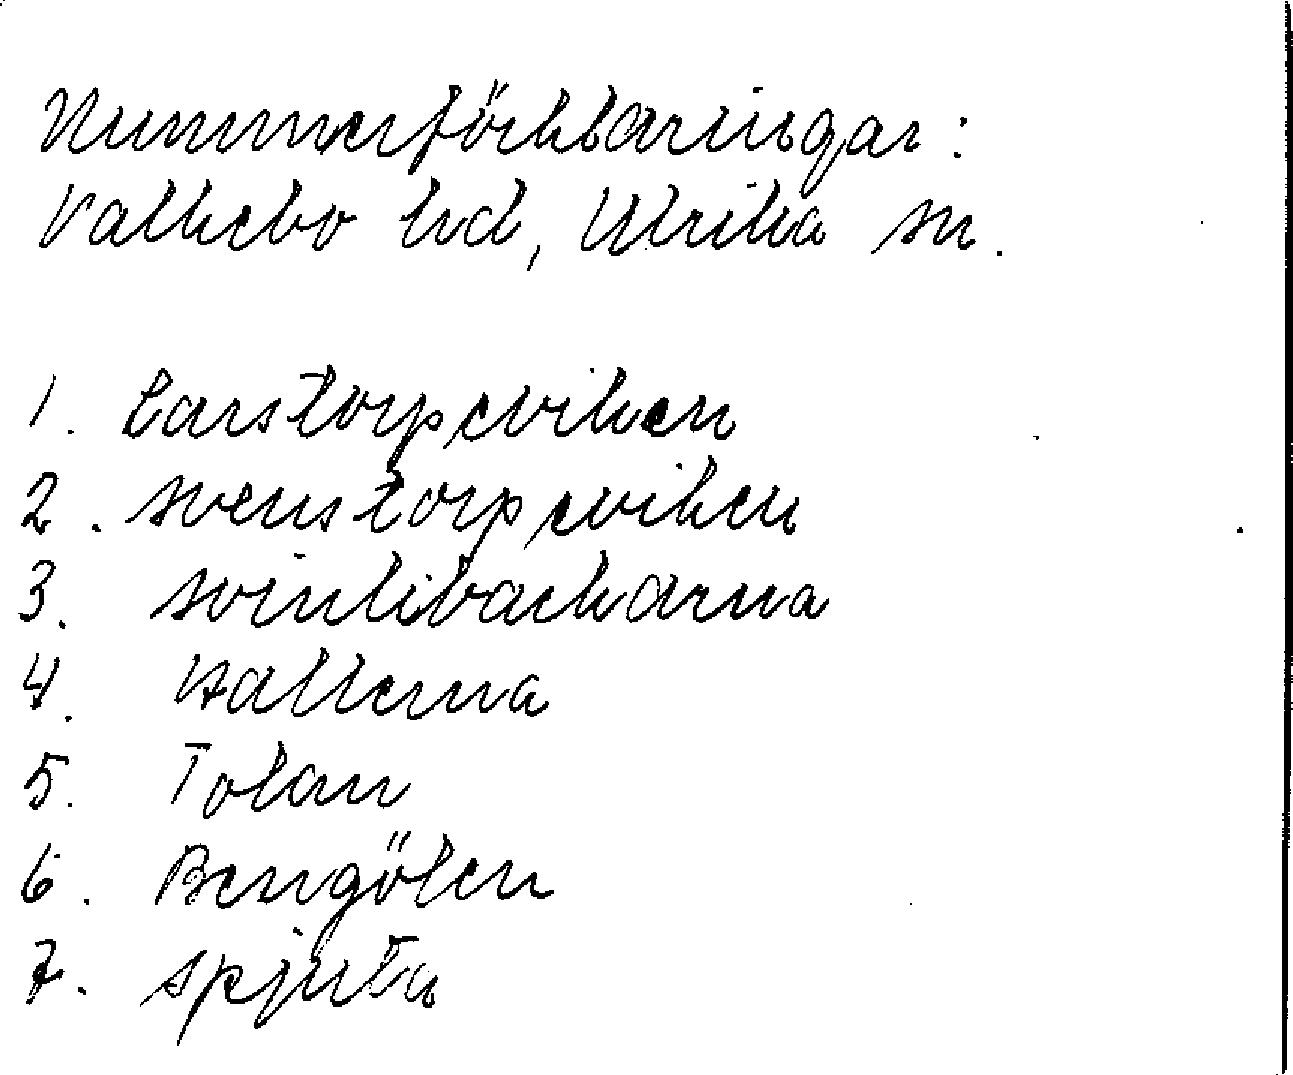 Nummerförklaringar:
Valkebo hd, Ulrika sn.
1. Larstorpeviken
2. Svenstorpeviken
3. Svinlibackarna
4. Hallerna
5. Tolan
6. Bengölen
7. Spjuta